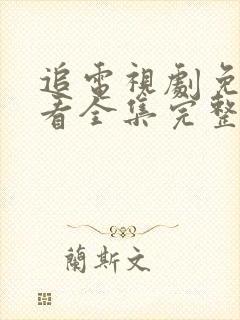 追電視劇免
看全集完整
蘭斯文